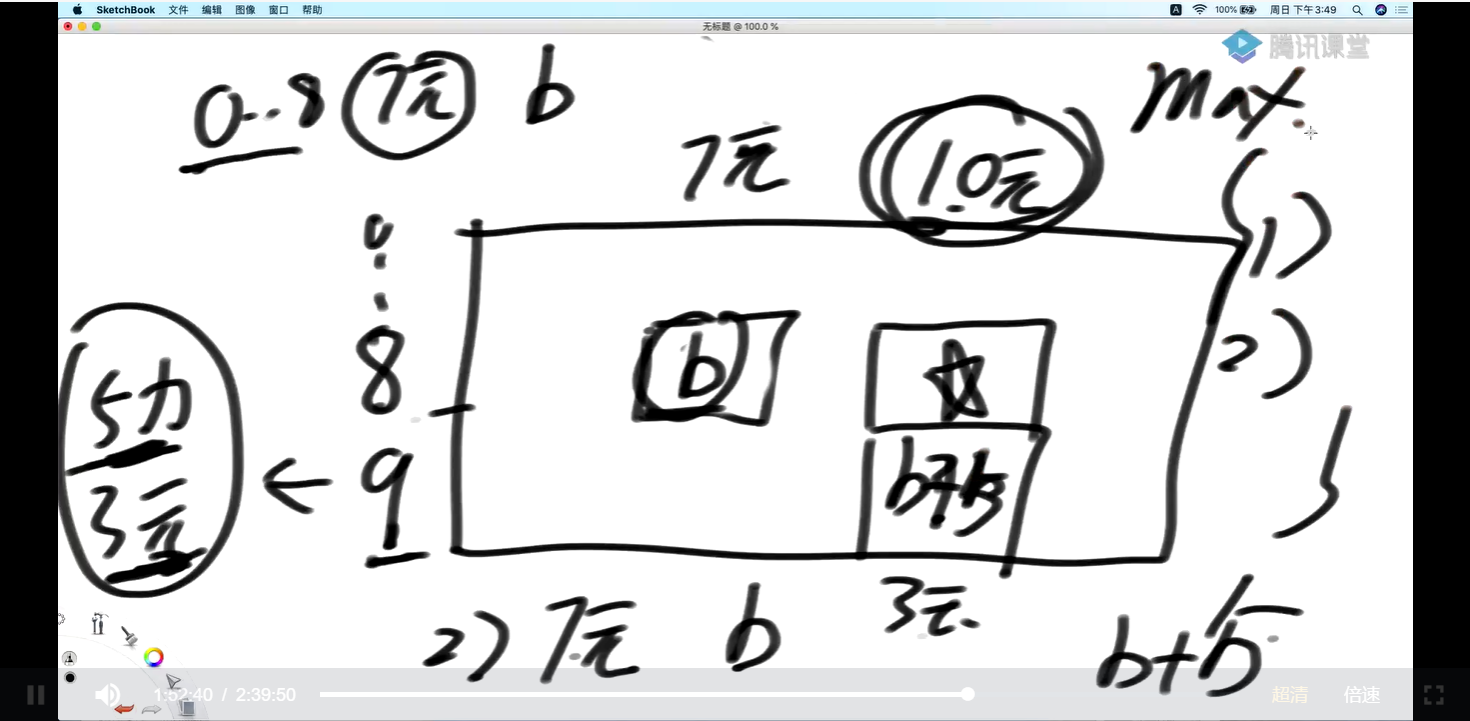 SketchBook 文件 编辑 图像 窗口 帮助 A 100% 周日 下午3:49
无标题 @ 100.0 %
腾讯课堂
0..8 7元 b
max
7元 10元
1)
0
8
b
2)
5力
9
b+5
3元
2) 7元 b 3元
b+5
1:52:40 / 2:39:50 超清 倍速